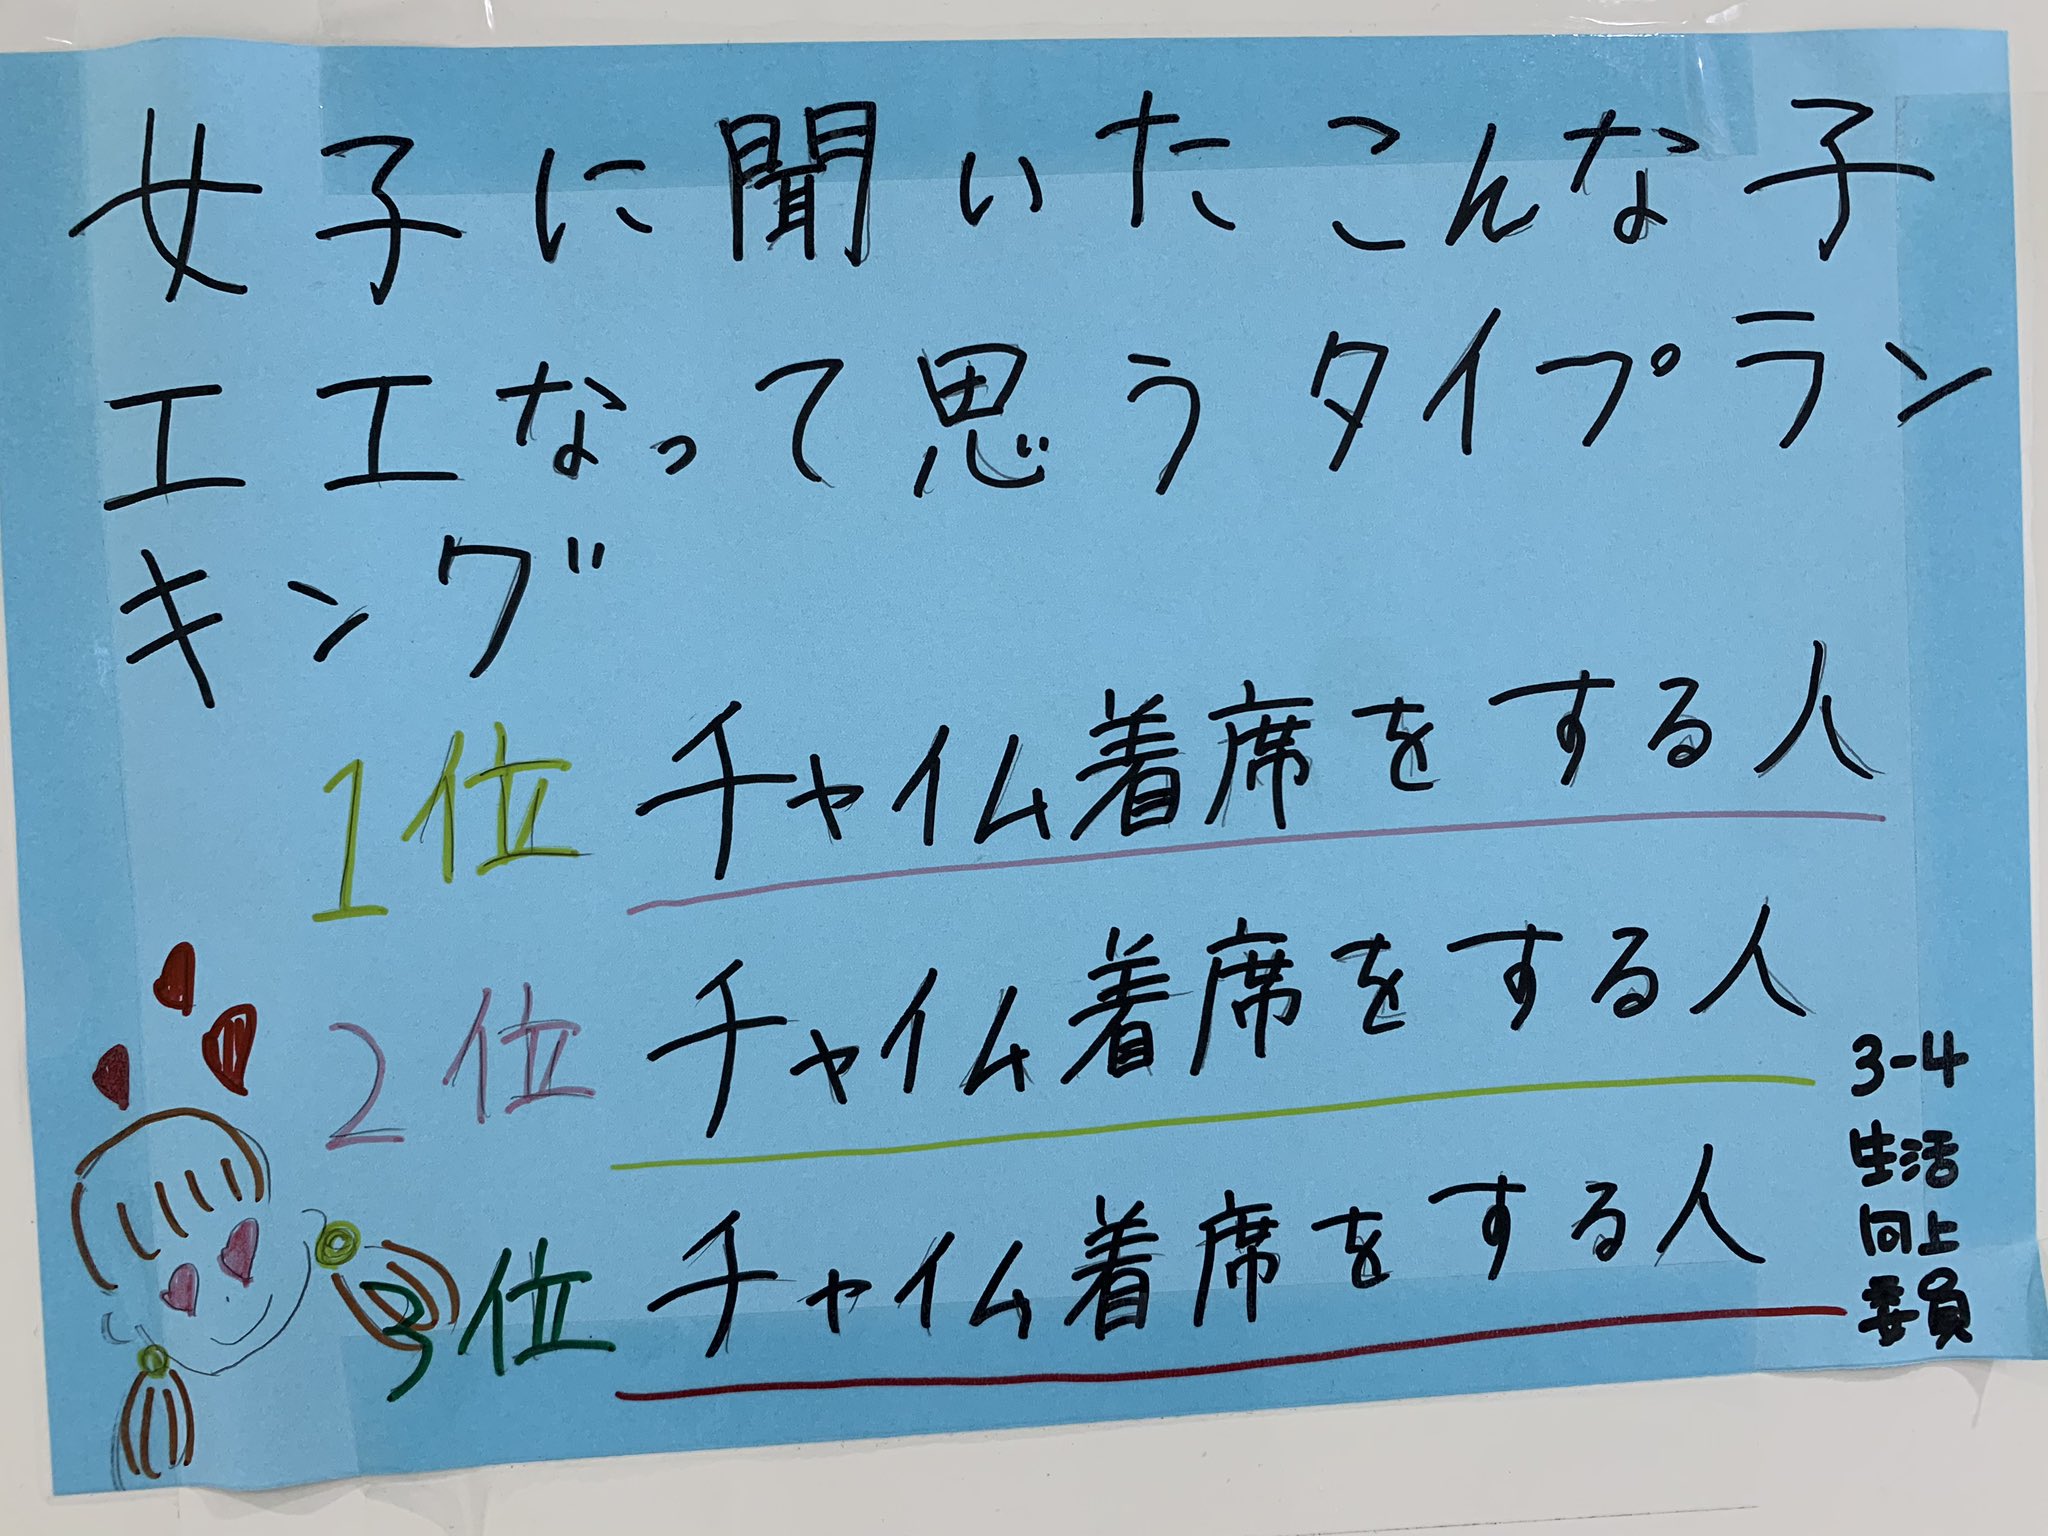 女子に聞いたこんな子
エエなって思うタイプラン
キング
1位 チャイム着席をする人
2位 チャイム着席をする人
3位 チャイム着席をする人
3-4
生活
向上
委員